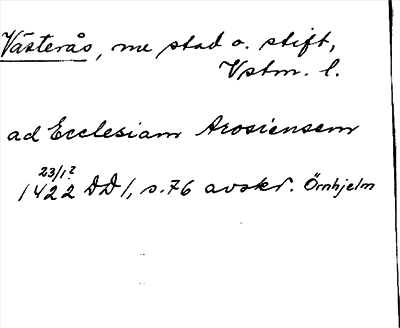 Västerås, me stad o. stift,
Vstm. l.
ad Ecclesiam Arosiensem
23/12
1422 DD 1, s. 76 avskr. Örnhjelm